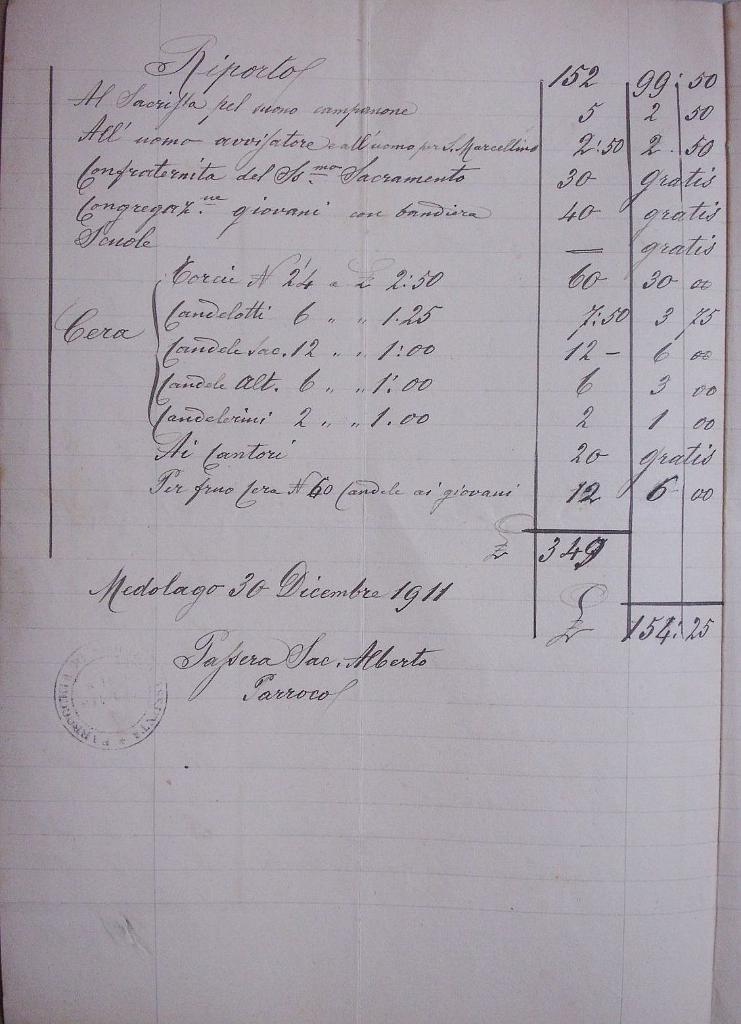 Riporto 152 99: 50
Al Sacrista pel suono campanone 5 2 50
All' uomo avvisatore e all'uomo per S. Marcellino 2:50 2. 50
Confraternita del Ss.mo Sacramento 30 gratis
Congregaz.ne giovani con bandiera 40 gratis
Scuole — gratis
Torcie N 24 a £ 2:50 60 30 00
Candelotti 6 " " 1.25 7:50 3 75
Cera
Candele Sac. 12 " " 1:00 12 – 6 00
Candele Alt. 6 " " 1:00 6 3 00
Candelerini 2 " " 1.00 2 1 00
Ai Cantori 20 gratis
Per fruo Cera N 60 Candele ai giovani 12 6 00
£ 349
Medolago 30 Dicembre 1911
£ 154: 25
Passera Sac. Alberto
Parroco